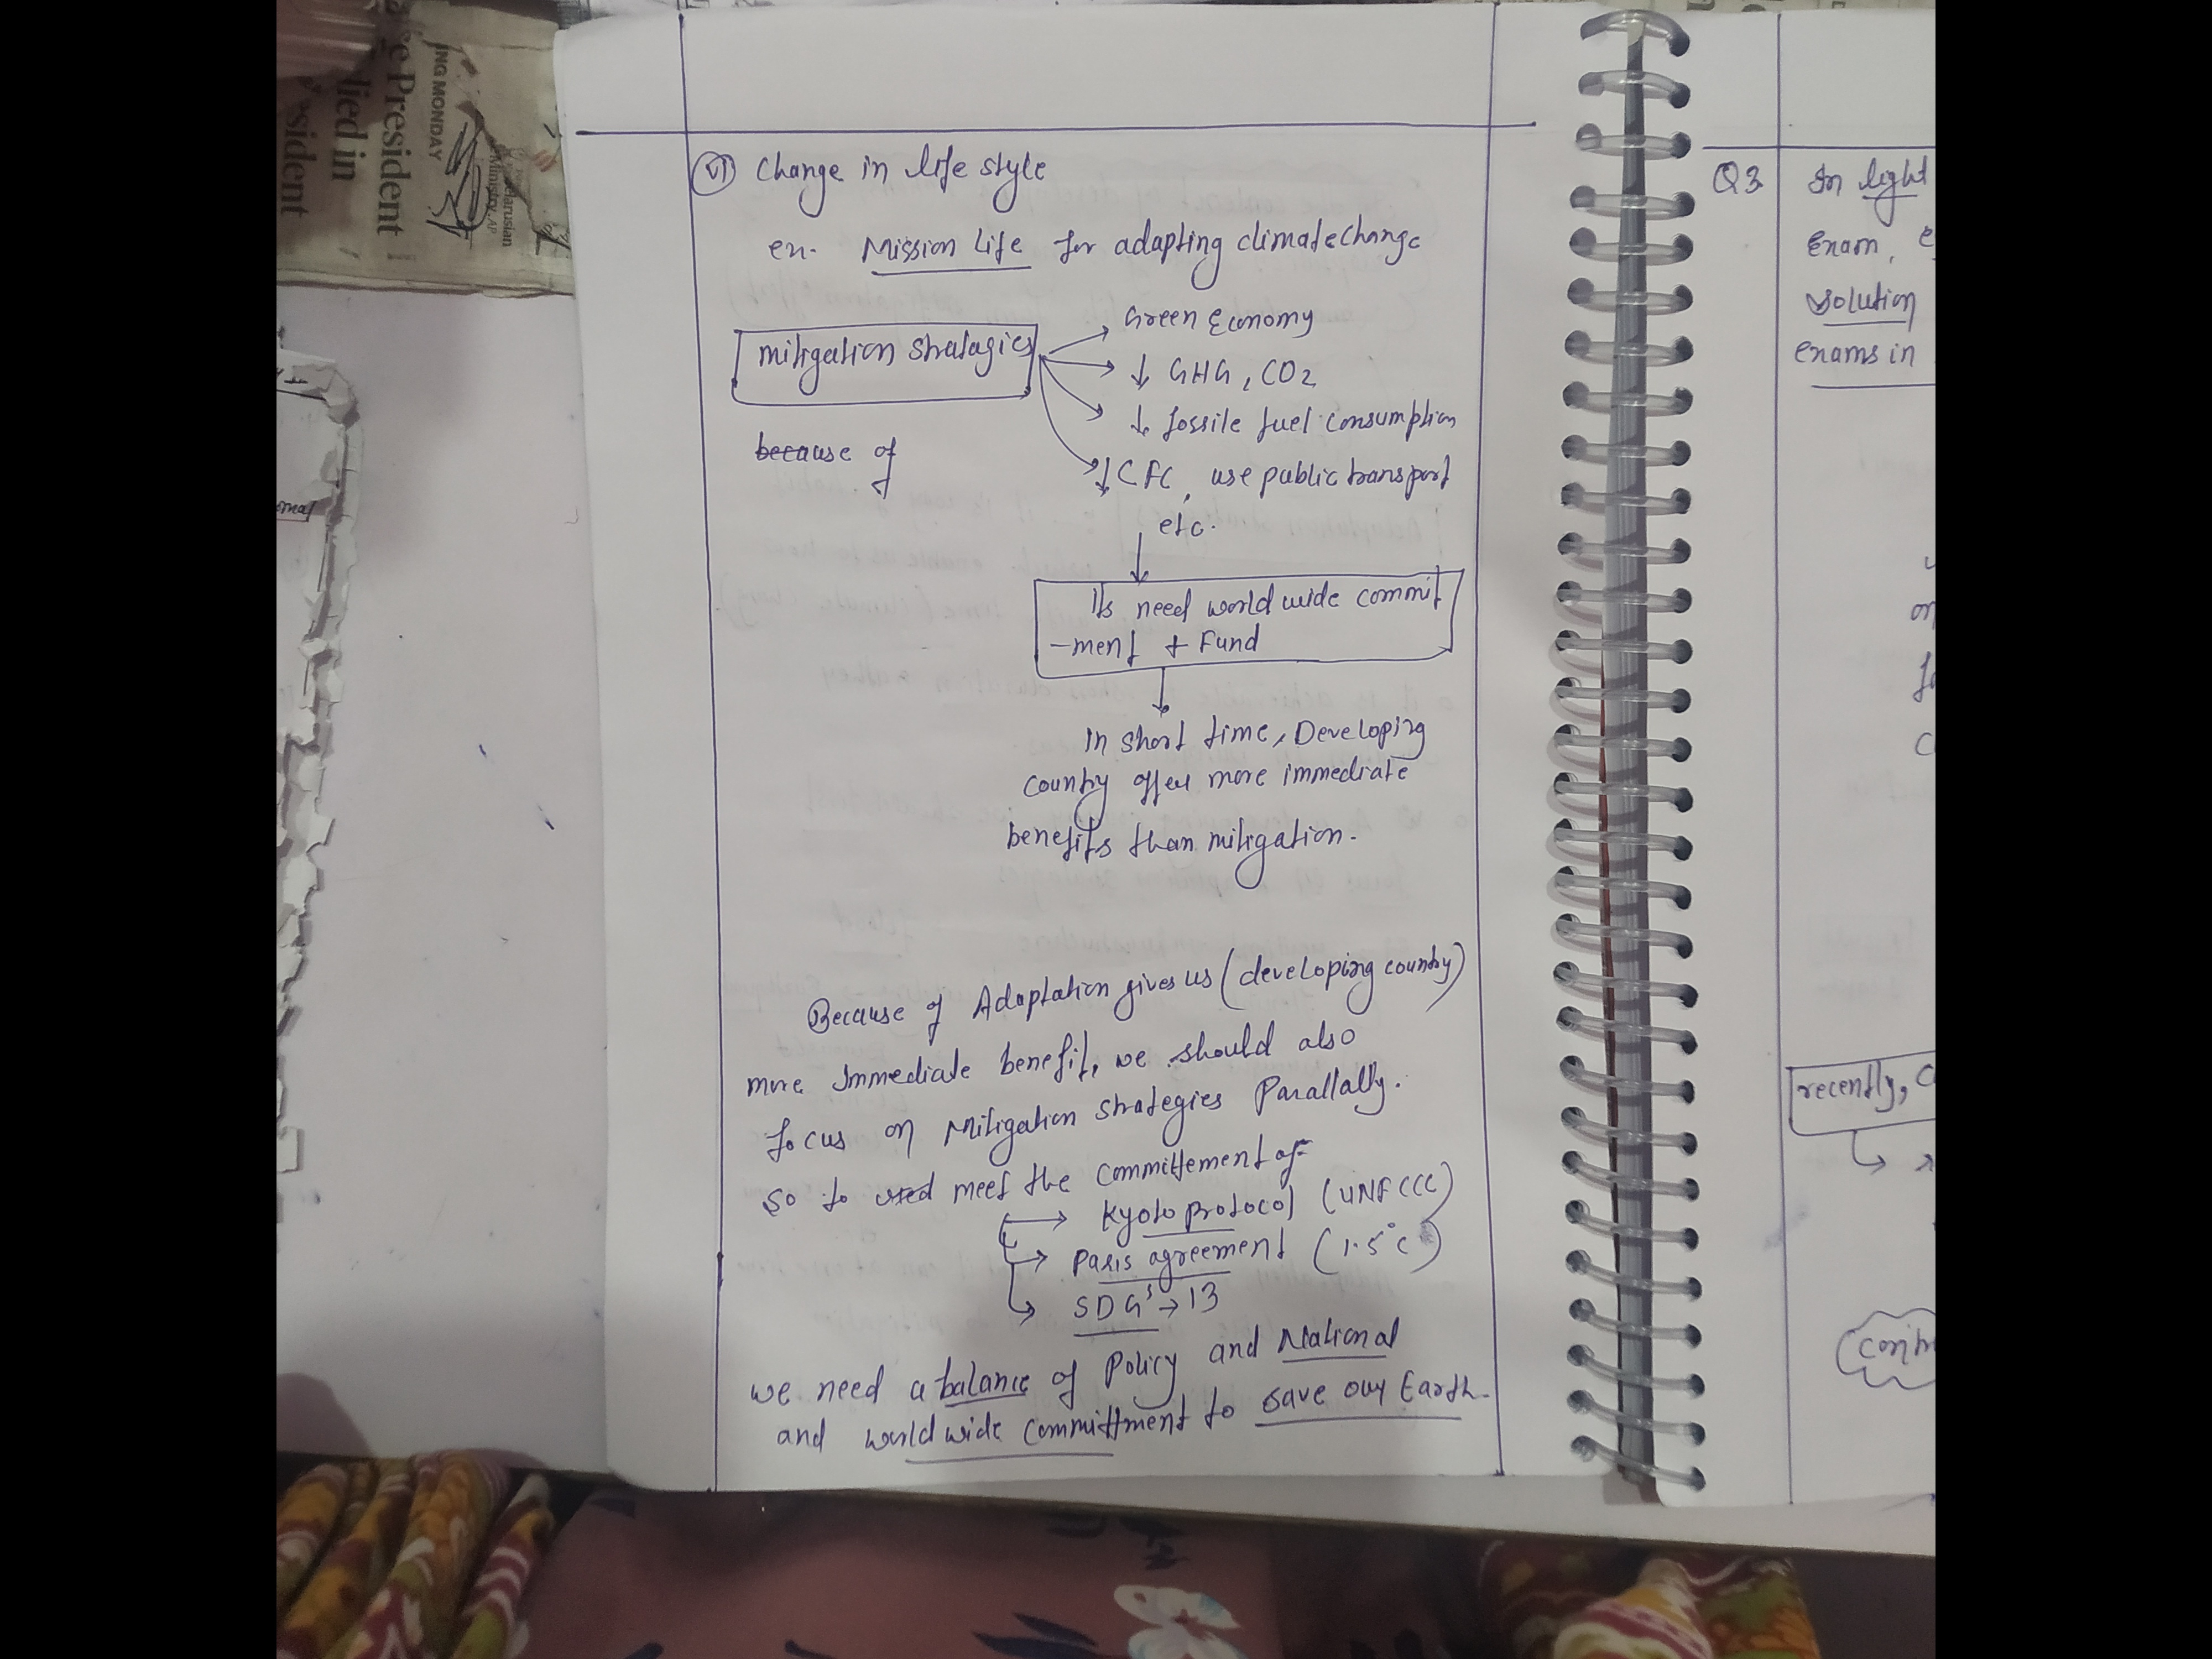 e President
lied in
sident
ING MONDAY
Belarusian
Ministry, AP
(vi) Change in life style
ex- Mission Life for adapting climate change
mitigation stratagies
Green Economy
↓ GHG, CO2
↓ fossile fuel consumption
↓ CFC, use public transport
etc.
because of
Its need world wide commit
-ment + Fund
In short time, Developing
country offer more immediate
benefits than mitigation.
Because of Adaptation gives us (developing country)
more Immediate benefit, we should also
focus on Mitigation strategies Parallally.
So to used meet the committement of-
Kyoto protocol (UNFCCC)
Paris agreement (1.5°C)
SDG's → 13
we need a balance of Policy and National
and world wide committment to save our Earth.
Q3 In light
Exam,
solution
exams in
recently,